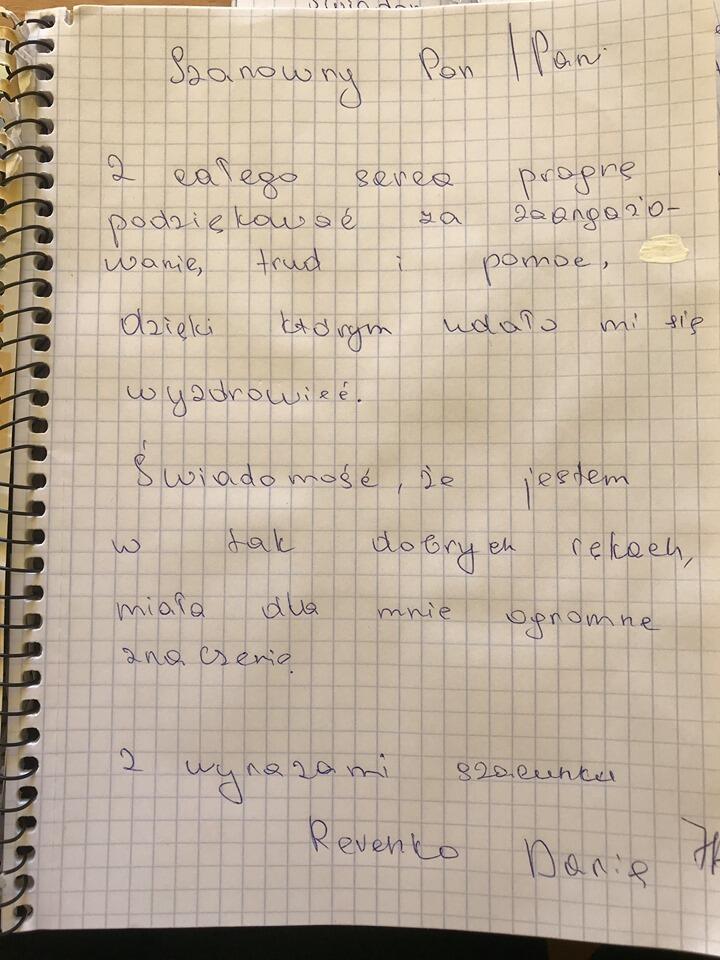 Szanowny Pan / Pani
Z całego serca pragnę
podziękować za zaangażo-
wanie, trud i pomoc,
dzięki którym udało mi się
wyzdrowieć.
Świadomość, że jestem
w tak dobrych rękach,
miała dla mnie ogromne
znaczenie.
Z wyrazami szacunku
Revenko